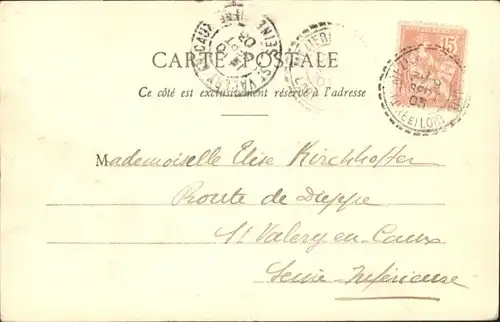 CARTE POSTALE
Ce côté est exclusivement réservé à l'adresse
15
Mademoiselle Elise Kirchhoffer
Route de Dieppe
St Valery en Caux
Seine Inférieure